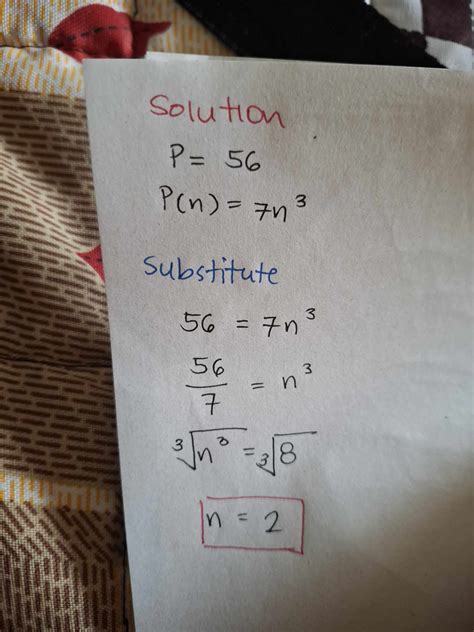 Solution
P = 56
P(n) = 7n³
Substitute
56 = 7n³
56/7 = n³
³√n³ = ³√8
n = 2